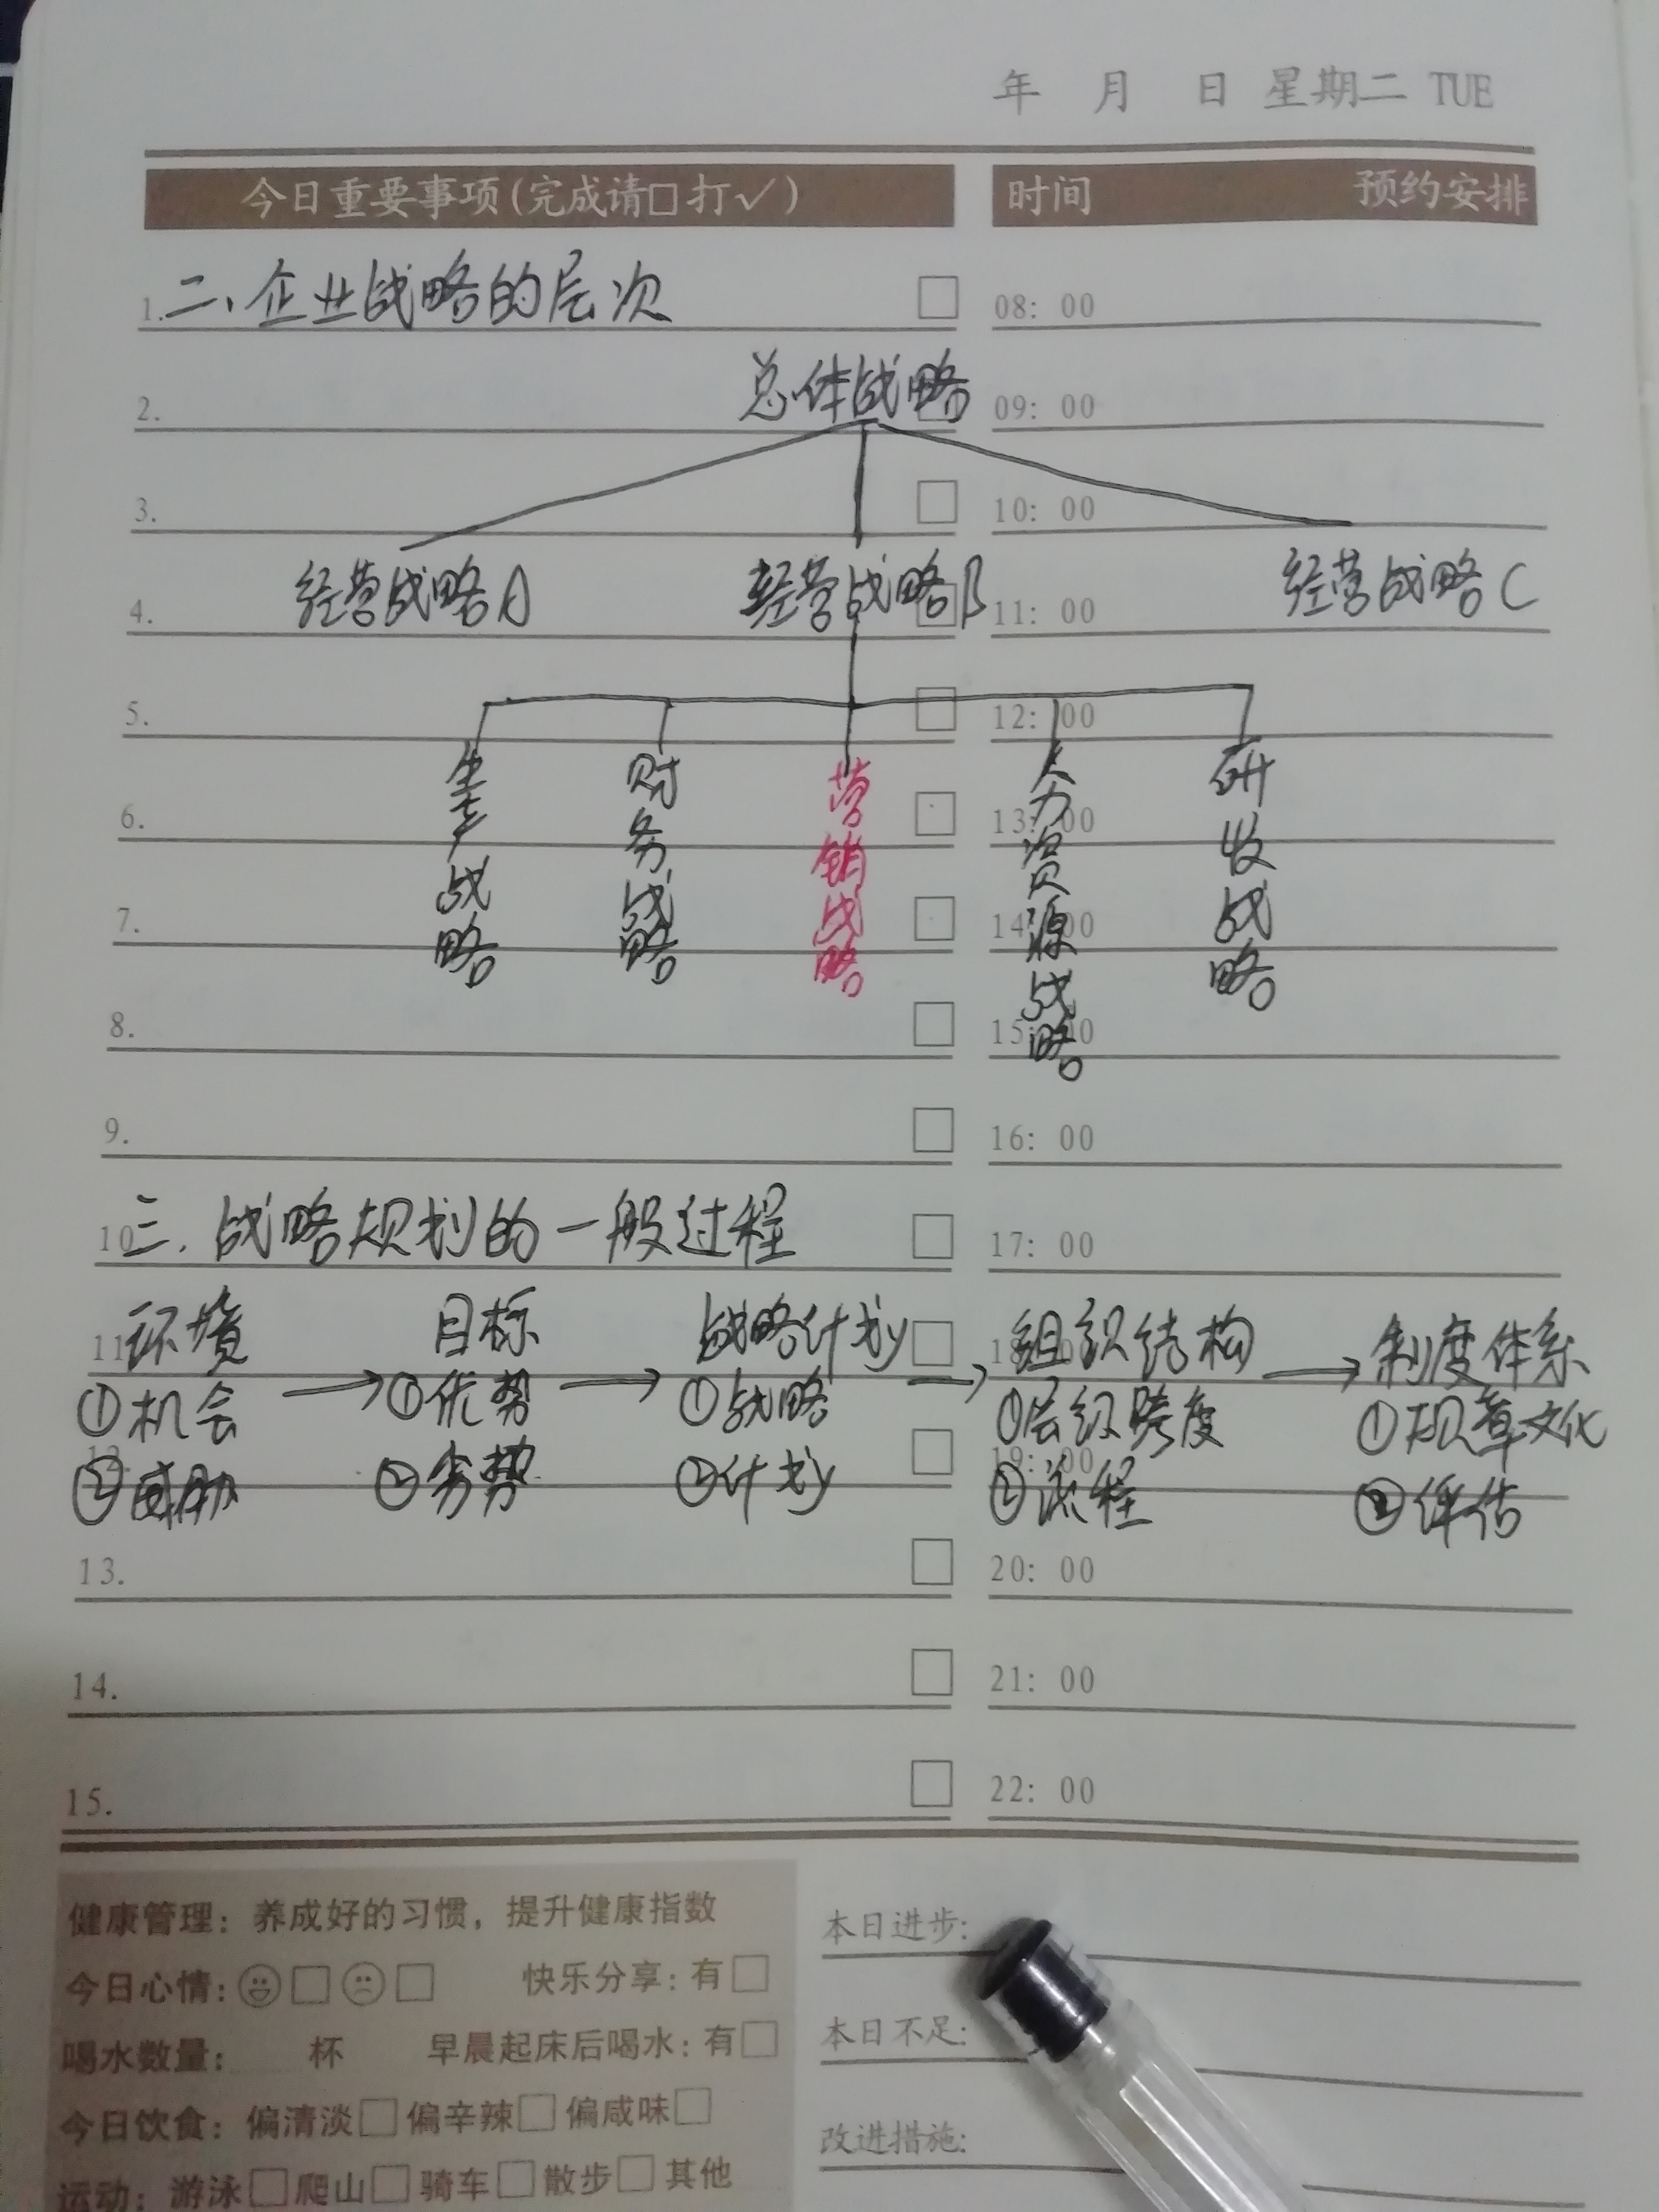 年 月 日 星期二 TUE
今日重要事项(完成请□打✓)
时间 预约安排
1. 二、企业战略的层次
08: 00
2. 总体战略
09: 00
3.
10: 00
4. 经营战略A 经营战略B 经营战略C
11: 00
5.
12: 00
生产战略
财务战略
营销战略
人力资源战略
研收战略
6.
13: 00
7.
14: 00
8.
15: 00
9.
16: 00
10. 三、战略规划的一般过程
17: 00
11. 环境 目标 战略计划 组织结构 → 制度体系
①机会 → ①优势 → ①战略 → ①层级跨度 ①规章文化
12.
19: 00
②威胁 ②劣势 ②计划 ②流程 ②评估
13.
20: 00
14.
21: 00
15.
22: 00
健康管理: 养成好的习惯, 提升健康指数
今日心情: □ □ 快乐分享: 有□
喝水数量: 杯 早晨起床后喝水: 有□
今日饮食: 偏清淡□偏辛辣□偏咸味□
运动: 游泳□爬山□骑车□散步□其他
本日进步:
本日不足:
改进措施: